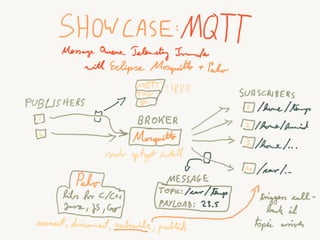 SHOWCASE: MQTT
Message Queue Telemetry
with Eclipse Mosquitto + Paho
MQTT :1883
PUBLISHERS
SUBSCRIBERS
BROKER
Mosquitto
sudo apt-get install
/home/temp
/home/humid
/home/...
/car/...
Paho
libs for C/C++
Java, JS, Go
MESSAGE
TOPIC: /car/temp
PAYLOAD: 23.5
connect, disconnect, subscribe, publish
triggers call-
back if
topic arrives